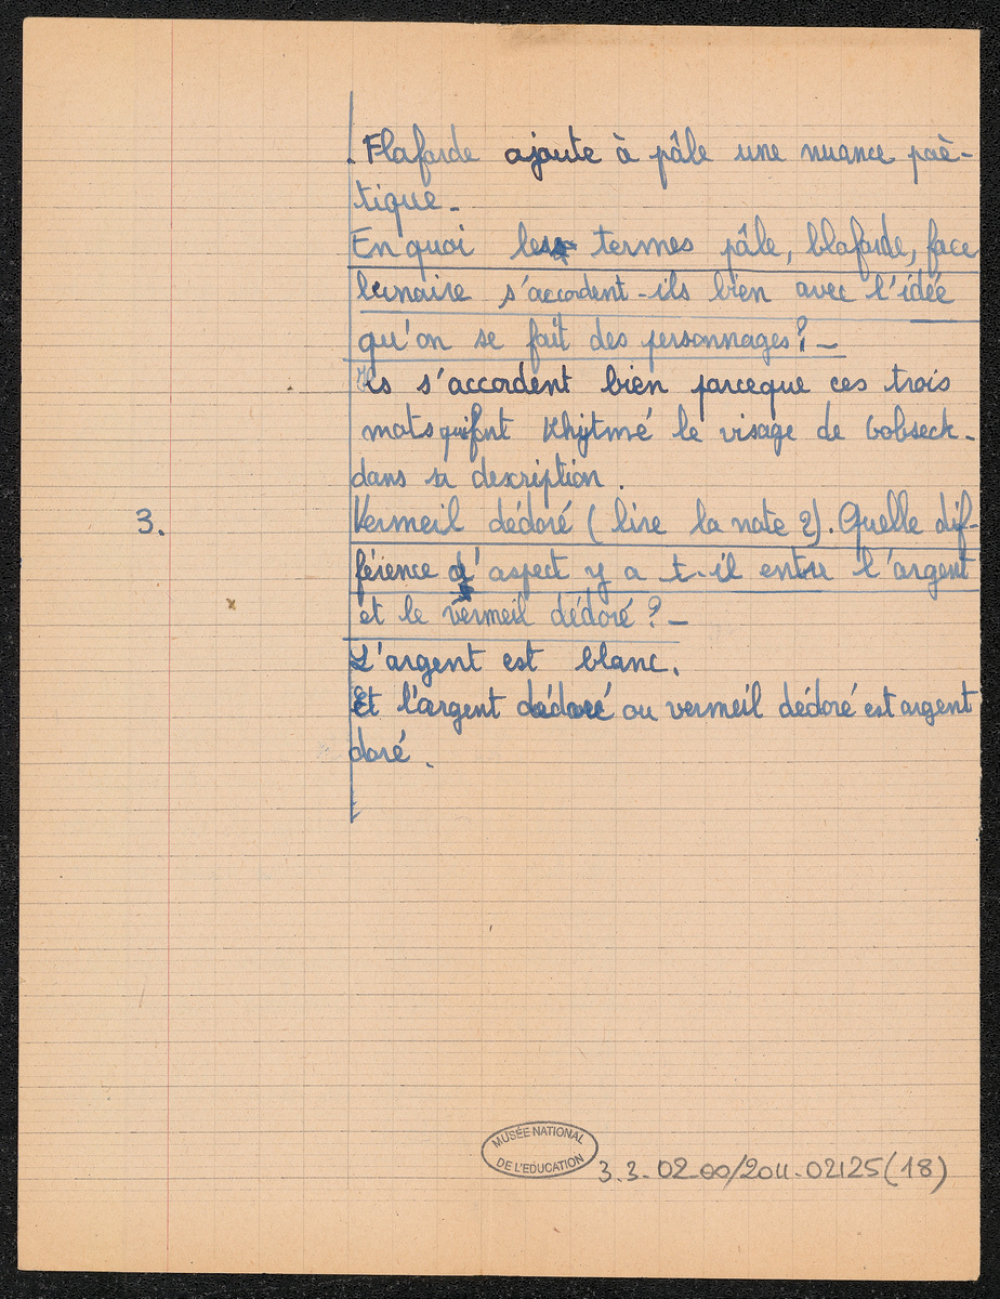 . Flafarde ajoute à pâle une nuance poè-
tique.
En quoi les termes pâle, blafarde, face
lunaire s'accordent-ils bien avec l'idée
qu'on se fait des personnages ? -
Ils s'accordent bien parceque ces trois
mots qui font le visage de Gobseck.
dans sa description.
3. Vermeil dédoré (lire la note 2). Quelle dif-
férence d'aspect y a t-il entre l'argent
et le vermeil dédoré ? -
L'argent est blanc.
Et l'argent dédoré ou vermeil dédoré est argent
doré.
MUSÉE NATIONAL
DE L'EDUCATION
3.3-02-00/2011-02125(18)